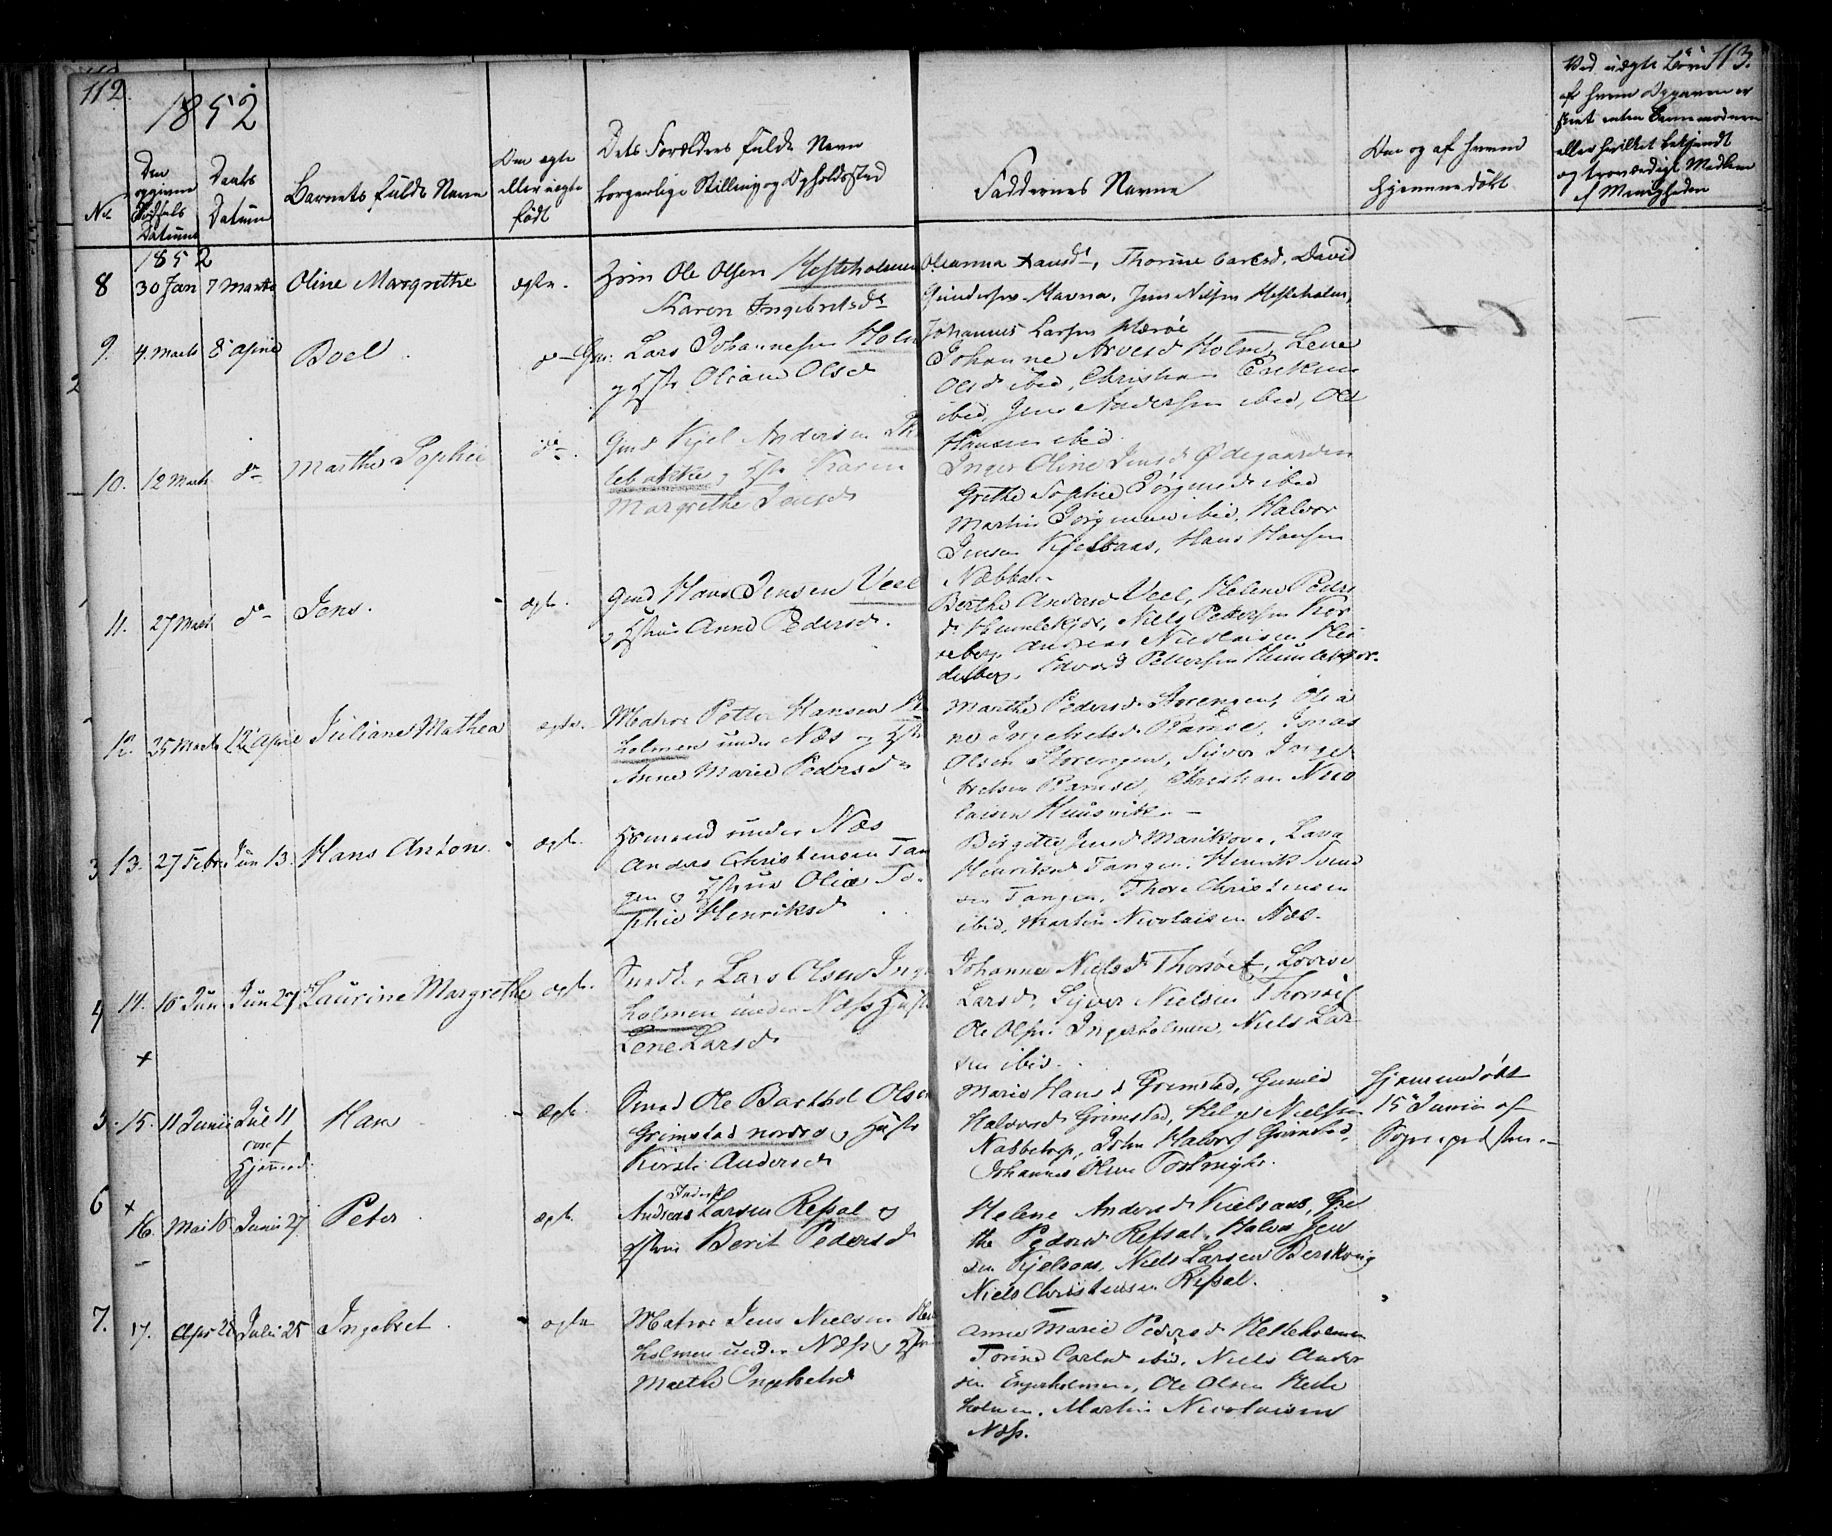 112.
1852
113.
No
Den opgivne Fødsels Datum
Daabs Datum
Barnets fulde Navn
Om ægte eller uægte født
Dets Forældres fulde Navn borgerlige Stilling og Opholdssted
Faddernes Navne
Om og af hvem hjemmedøbt
Ved uægte Børn af hvem Opgaven er skeet enten Barnemoderen eller hvilket bekjendt og troværdigt Medlem af Menigheden
1852
8 30 Jan 7 Marts Oline Margrethe ægte.
Ole Olsen Hesteholmen
Karen Ingebretsd
Oleanna Hansd, Thorine Carlsd, David
Gundersen Havna, Jens Nilsen Hesteholm,
Johannes Larsen Mærøe
9. 4 Marts 8 April Boel do
Gm: Lars Johannesen Holm
og Hstr Oliane Olsd
Johanne Arvesd Holm, Lene
Olsd ibid, Christian Eriksen
ibid, Jens Andersen ibid, Ole
Hansen ibid.
10. 12 Marts do Marthe Sophie do
Gmd Kjel Andersen
lebakke, og Hstr Karen
Margrethe Jensd
Inger Oline Jensd Ødegaarden
Grethe Sophie Jørgensd ibid
Martin Jørgensen ibid, Halvor
Jensen Kjelsaas, Hans Hansen
11. 27 Marts do Jens. ægte.
Gmd Hans Jensen Veel
og Hstru Anne Pedersd.
Berthe Andersd Veel, Helene Peders
d Humlekjær, Niels Pettersen
Andreas Nicolaisen
Edvard Pettersen Humlekjær.
12. 25 Marts 12 April Juliane Mathea ægte.
Matros Petter Hansen
holmen under Næs og Hstr
Anne Marie Pedersd
Marthe Pedersd Storengen, Olia
ne Ingebretsd Ramsø, Jonas
Olsen Storengen, Siver Inge
bretsen Ramsø, Christian Nico
laisen Huusvik.
3 13. 27 Febr. Jun 13. Hans Anton. ægte.
Huusmand under Næs
Anders Christensen Tan
gen og Hstrue Olia So-
phie Henriksd
Birgitte Jensd Marikove, Lava
Henriksd Tangen, Henrik Svend
sen Tangen, Thore Christensen
ibid, Martin Nicolaisen Næs.
4 14. 16 Jun Jun 27 Laurine Margrethe ægte.
Lars Olsen Inger
holmen under Næs og Hustr
Lene Larsd
Johanne Nielsd Thorsøe, Lovise
Larsd, Syver Nielsen Thorsøe
Ole Olsen Ingerholmen, Niels Lar-
sen ibid.
+
5 15. 11 Junii Jul 11
conf
Hjemmed.
Hans ægte.
Ole Barthol Olsen
Grimstad nordre og Hustr
Kirsti Andersd
Marie Hansd Grimstad, Gunild
Halvorsd Grimstad, Helge Nielsen
Nabbetorp, John Halvors Grimstad,
Johannes Olsen
Hjemmedøbt
15 Junii af
Sognepræsten.
6 + 16. Mai 16 Junii 27 Peter ægte.
Inderst
Andreas Larsen Refsal og
Hstru Berit Pedersd
Helene Andersd Kielsaas, Gre
the Pedersd Refsal, Halvor Jen
sen Kjelsaas, Niels Larsen
Niels Christensen Refsal.
7. 17. Apr 28 Julii 25 Ingebret. ægte
Matros Jens Nielsen Heste
holmen under Næs og Hstru
Marthe Ingebretsd
Anne Marie Pedersd Hesteholmen
Torine Carlsd ibid, Niels Ander
sen Engerholmen, Ole Olsen Heste
holmen, Martin Nicolaisen
Næs.